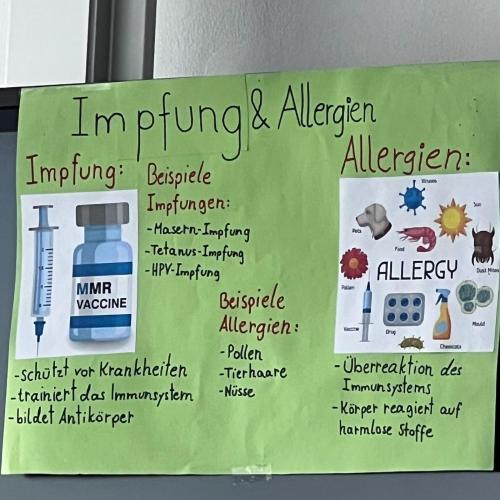 Impfung & Allergien
Impfung:
MMR
VACCINE
-schützt vor Krankheiten
-trainiert das Immunsystem
-bildet Antikörper
Beispiele
Impfungen:
-Masern-Impfung
-Tetanus-Impfung
-HPV-Impfung
Beispiele
Allergien:
-Pollen
-Tierhaare
-Nüsse
Allergien:
Viruses
Sun
Pets
Food
Dust Mites
Pollen
ALLERGY
Vaccine
Drug
Chemicals
Mould
-Überreaktion des
Immunsystems
-Körper reagiert auf
harmlose Stoffe